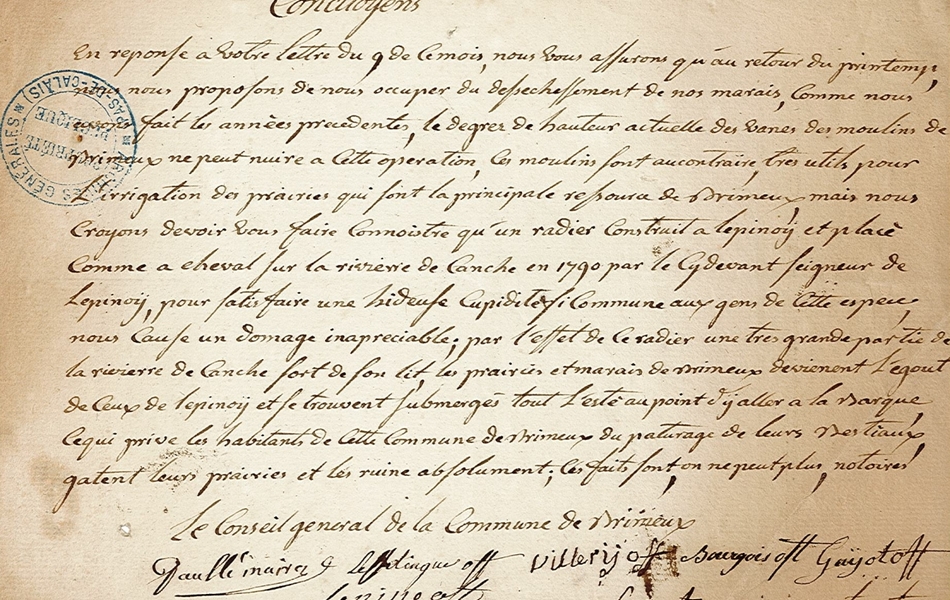 Concitoyens
En reponse a votre lettre du 9 de Cemois, nous vous assurons qu'au retour du printemps,
nous nous proposons de nous occuper du dessechessement de nos marais, Comme nous
fait les années precedentes, le degrez de hauteur actuelle des vanes des moulins de
Brimeux ne peut nuire a Cette operation, Ces moulins sont aucontraire, très utils pour
L'irrigation des prairies qui sont la principale ressource de Brimeux, mais nous
Croyons devoir vous faire Connoistre qu'un radier Construit a lepinoÿ et placé
Comme a cheval sur la rivierre de Canche en 1790 par le Cydevant seigneur de
Lepinoÿ, pour satisfaire une hideuse Cupidité si Commune aux gens de Cette espece,
nous Cause un domage inapreciable; par l'effet de Ce radier une tres grande partie de
la rivierre de Canche sort de son lit, les prairies et marais de Brimeux devienent L'egout
de Ceux de lepinoÿ et se trouvent submergés tout L'esté au point d'ÿ aller a la Barque,
Cequi prive les habitants de Cette Commune de Brimeux du paturage de leurs Bestiaux,
gatent leurs prairies et les ruine absolument; Ces faits sont on ne peut plus notoires
Le Conseil general de la Commune de Brimeux
off villerÿ off Bourgois off Guÿot off
off
ARCHIVES GÉNÉRALES (PAS-DE-CALAIS)
PROPRIÉTÉ
PUBLIQUE